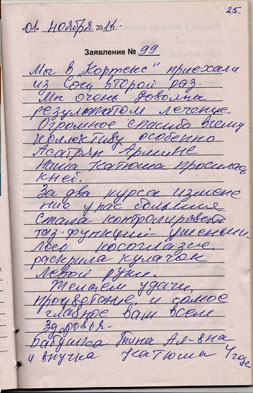 25.
01 ноября 2014г.
Заявление № 99
Мы в "Кортекс" приехали
из Сочи второй раз.
Мы очень довольны
результатом лечения.
Огромное спасибо всему
коллективу особенно
Асатрян Армине
Наша Катюша просилась
к ней.
За два курса измене
ния у нас большие
стала контролировать
таз. функции уменьши
лось косоглазие,
раскрыла кулачок
левой руки.
Желаем удачи,
процветания, и самое
главное вам всем
здоровья.
Бабушка Тина Ал-вна
и внучка Катюша 4 года